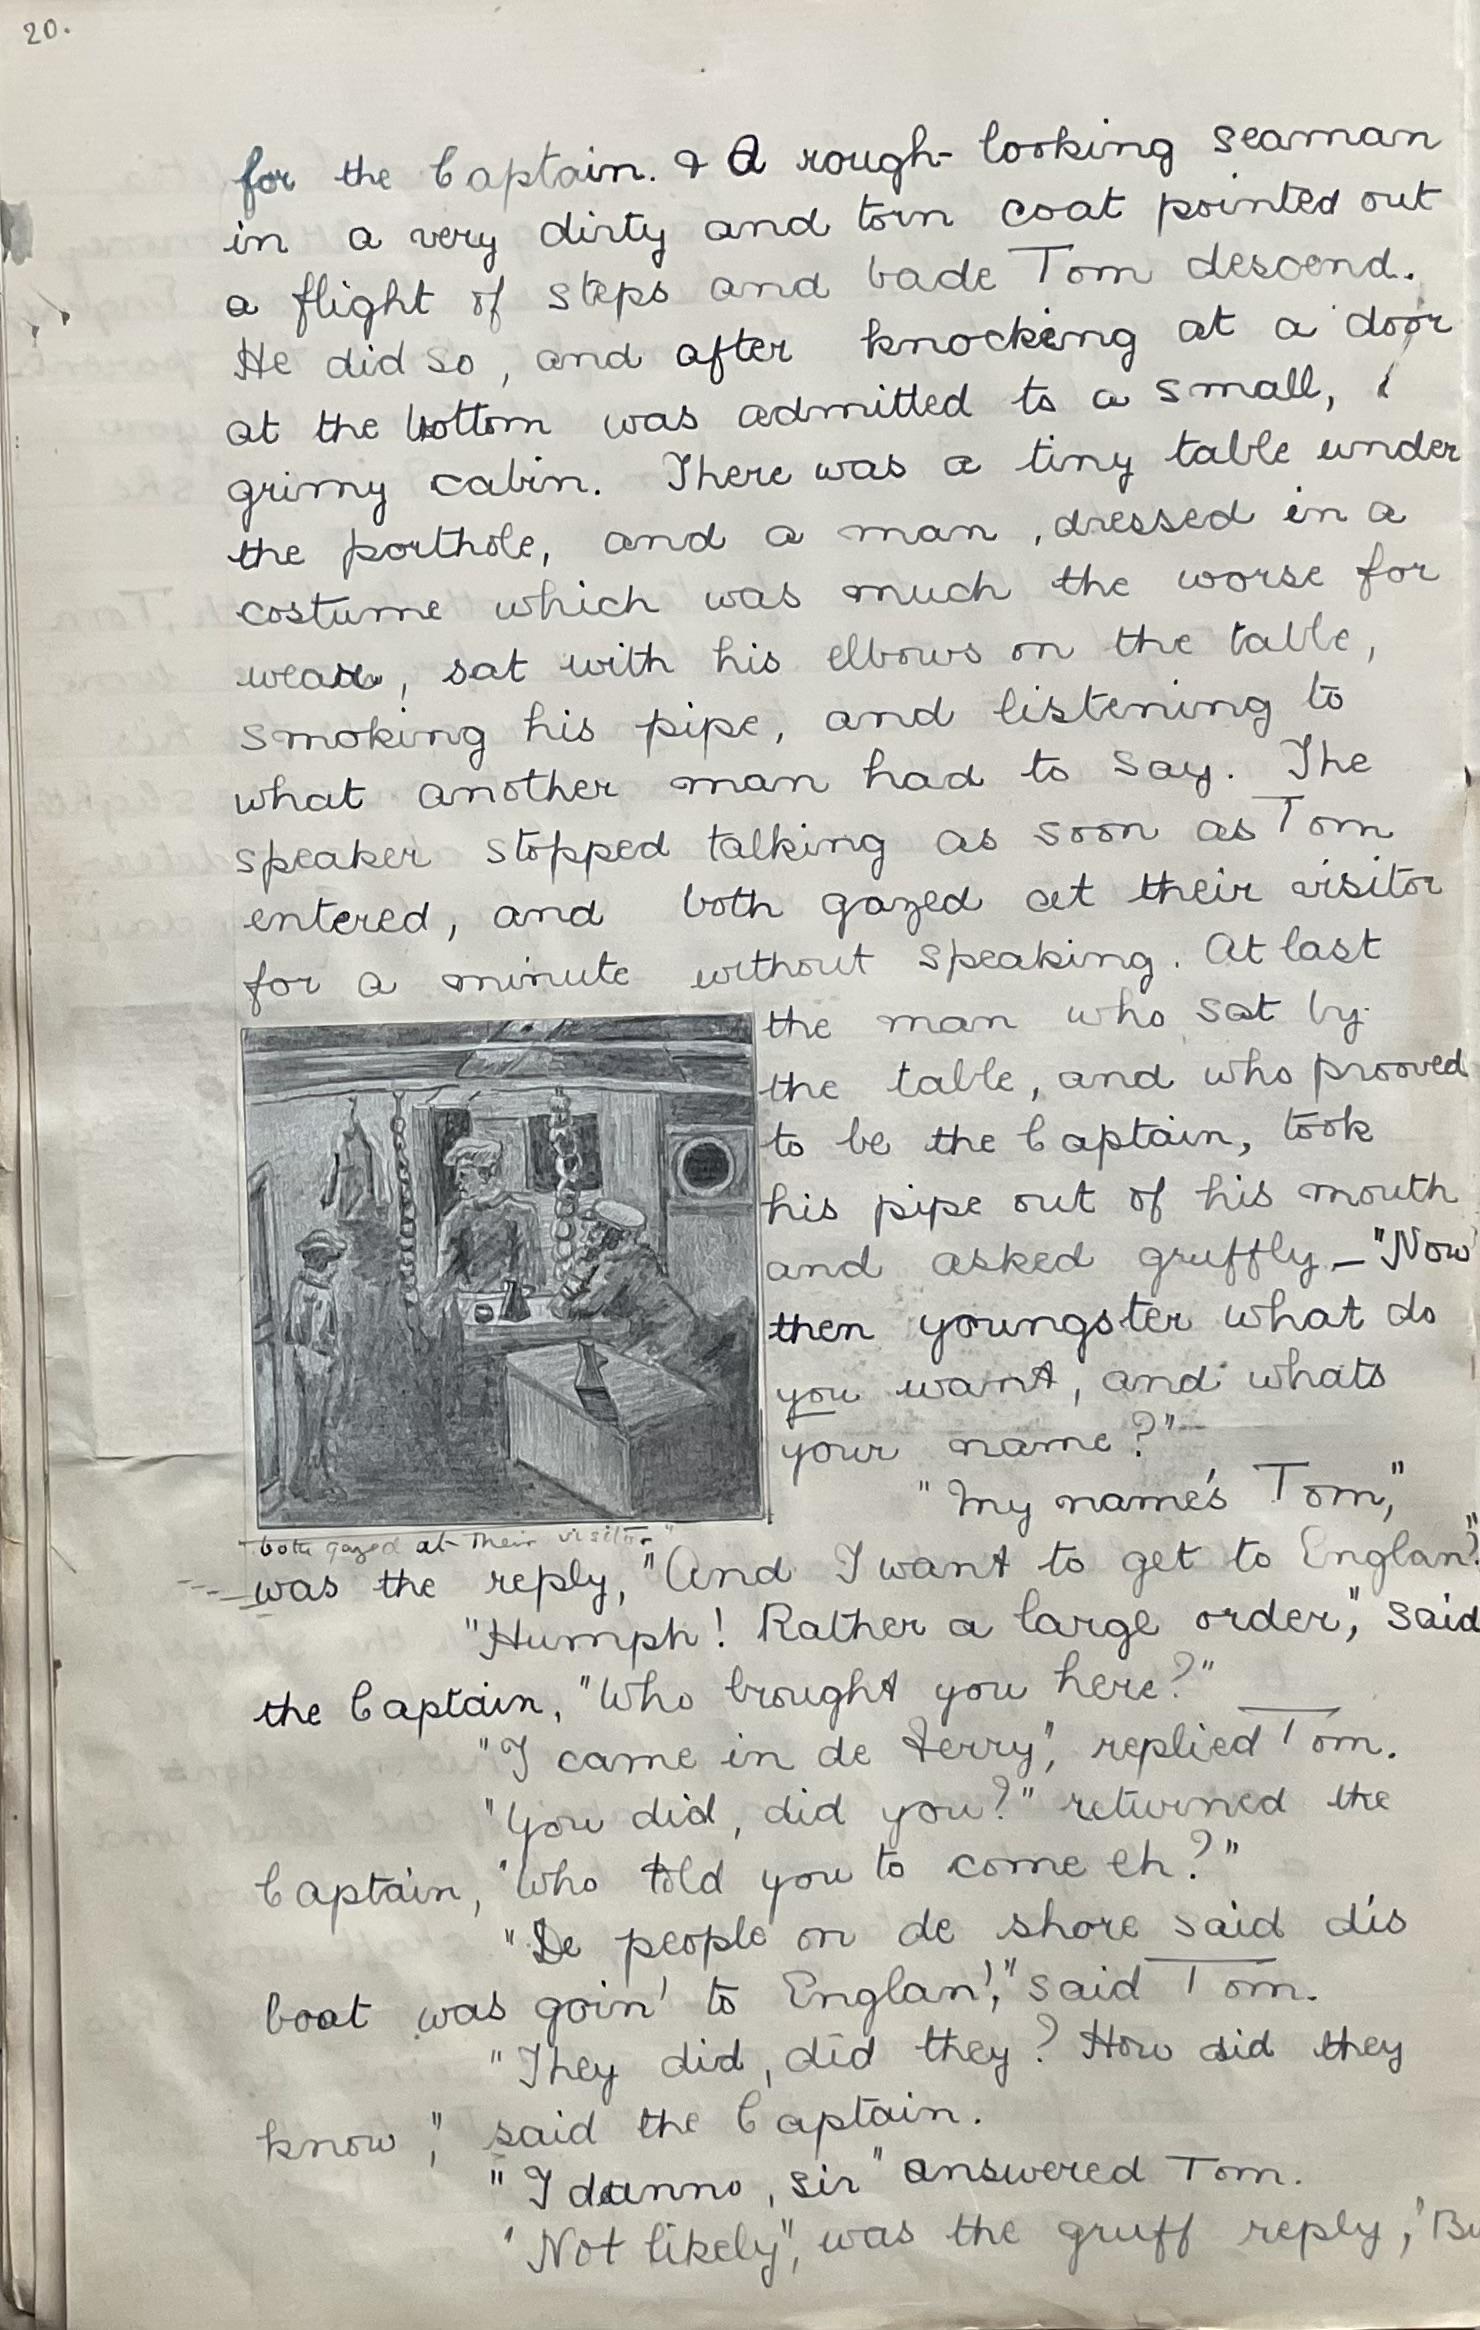 20.
for the Captain. & A rough-looking seaman
in a very dirty and torn coat pointed out
a flight of steps and bade Tom descend.
He did so, and after knocking at a door
at the bottom was admitted to a small,
grimy cabin. There was a tiny table under
the porthole, and a man, dressed in a
costume which was much the worse for
wear, sat with his elbows on the table,
smoking his pipe, and listening to
what another man had to say. The
speaker stopped talking as soon as Tom
entered, and both gazed at their visitor
for a minute without speaking. At last
the man who sat by
the table, and who prooved
to be the Captain, took
his pipe out of his mouth
and asked gruffly — "Now
then youngster what do
you want, and whats
your name?"
"My name's Tom,"
"both gazed at their visitor"
was the reply, "And I want to get to Englan'."
"Humph! Rather a large order," said
the Captain, "Who brought you here?"
"I came in de ferry", replied Tom.
"You did, did you?" returned the
Captain, "Who told you to come eh?"
"De people on de shore said dis
boat was goin' to Englan'," said Tom.
"They did, did they? How did they
know," said the Captain.
"I dunno, sir" answered Tom.
"Not likely", was the gruff reply, "Bu